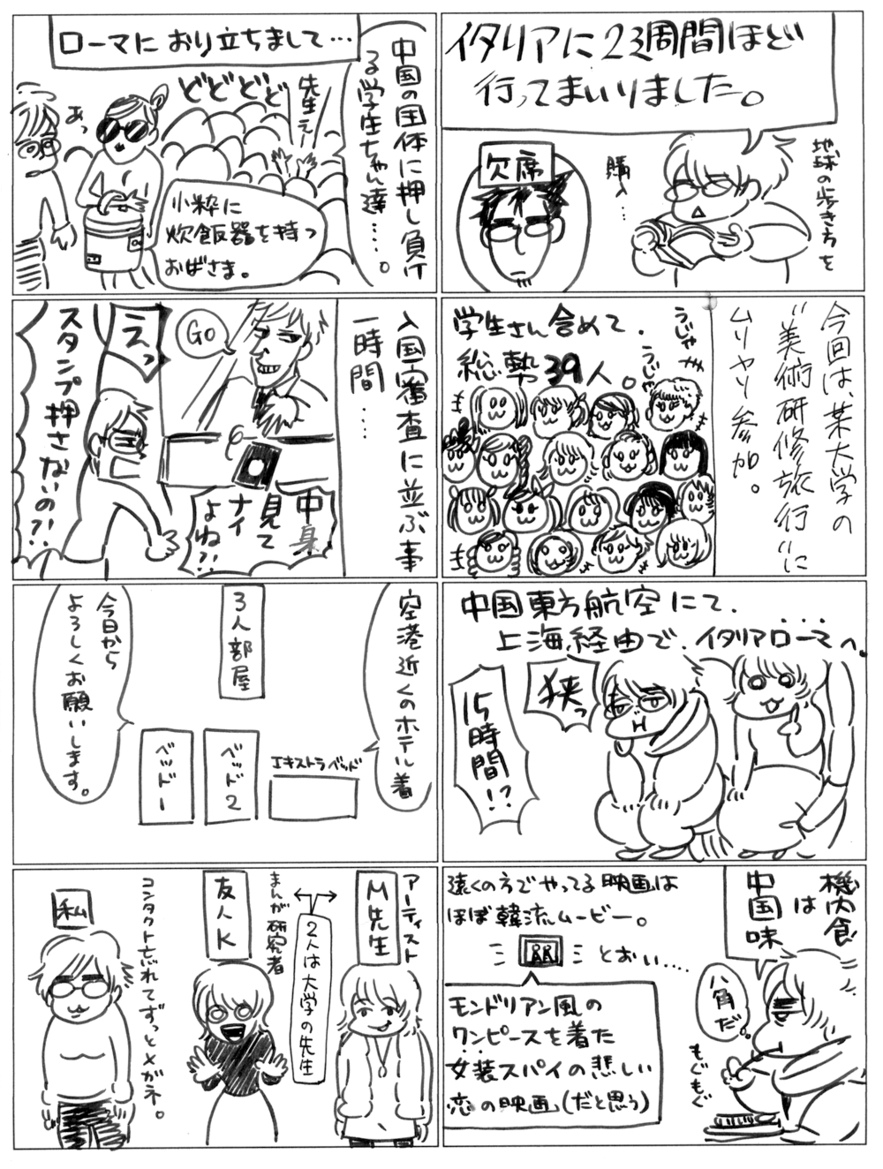 イタリアに2週間ほど
行ってまいりました。
地球の歩き方を
購入…
欠席
今回は、某大学の
"美術研修旅行"に
ムリヤリ参加。
学生さん含めて、
総勢39人。
うじゃ
うじゃ
中国東方航空にて、
上海経由で、イタリアローマへ。
狭っ
15時間!?
機内食
は
中国味
八角だ。
もぐもぐ
遠くの方でやってる映画は
ほぼ韓流ムービー。
とおい……
モンドリアン風の
ワンピースを着た
女装スパイの悲しい
恋の映画(だと思う)
ローマにおり立ちまして…
中国の団体に押し負け
る学生ちゃん達……。
先生ぇー
どどどど
あっ
小粋に
炊飯器を持つ
おばさま。
入国審査に並ぶ事
一時間……
Go
えっ
中身
見て
ナイ
よね?!
スタンプ押さないの?!
空港近くのホテル着
3人部屋
ベッド1
ベッド2
エキストラベッド
今日から
よろしくお願いします。
アーティスト
M先生
2人は大学の先生
まんが研究者
友人K
コンタクト忘れてずっとメガネ。
私